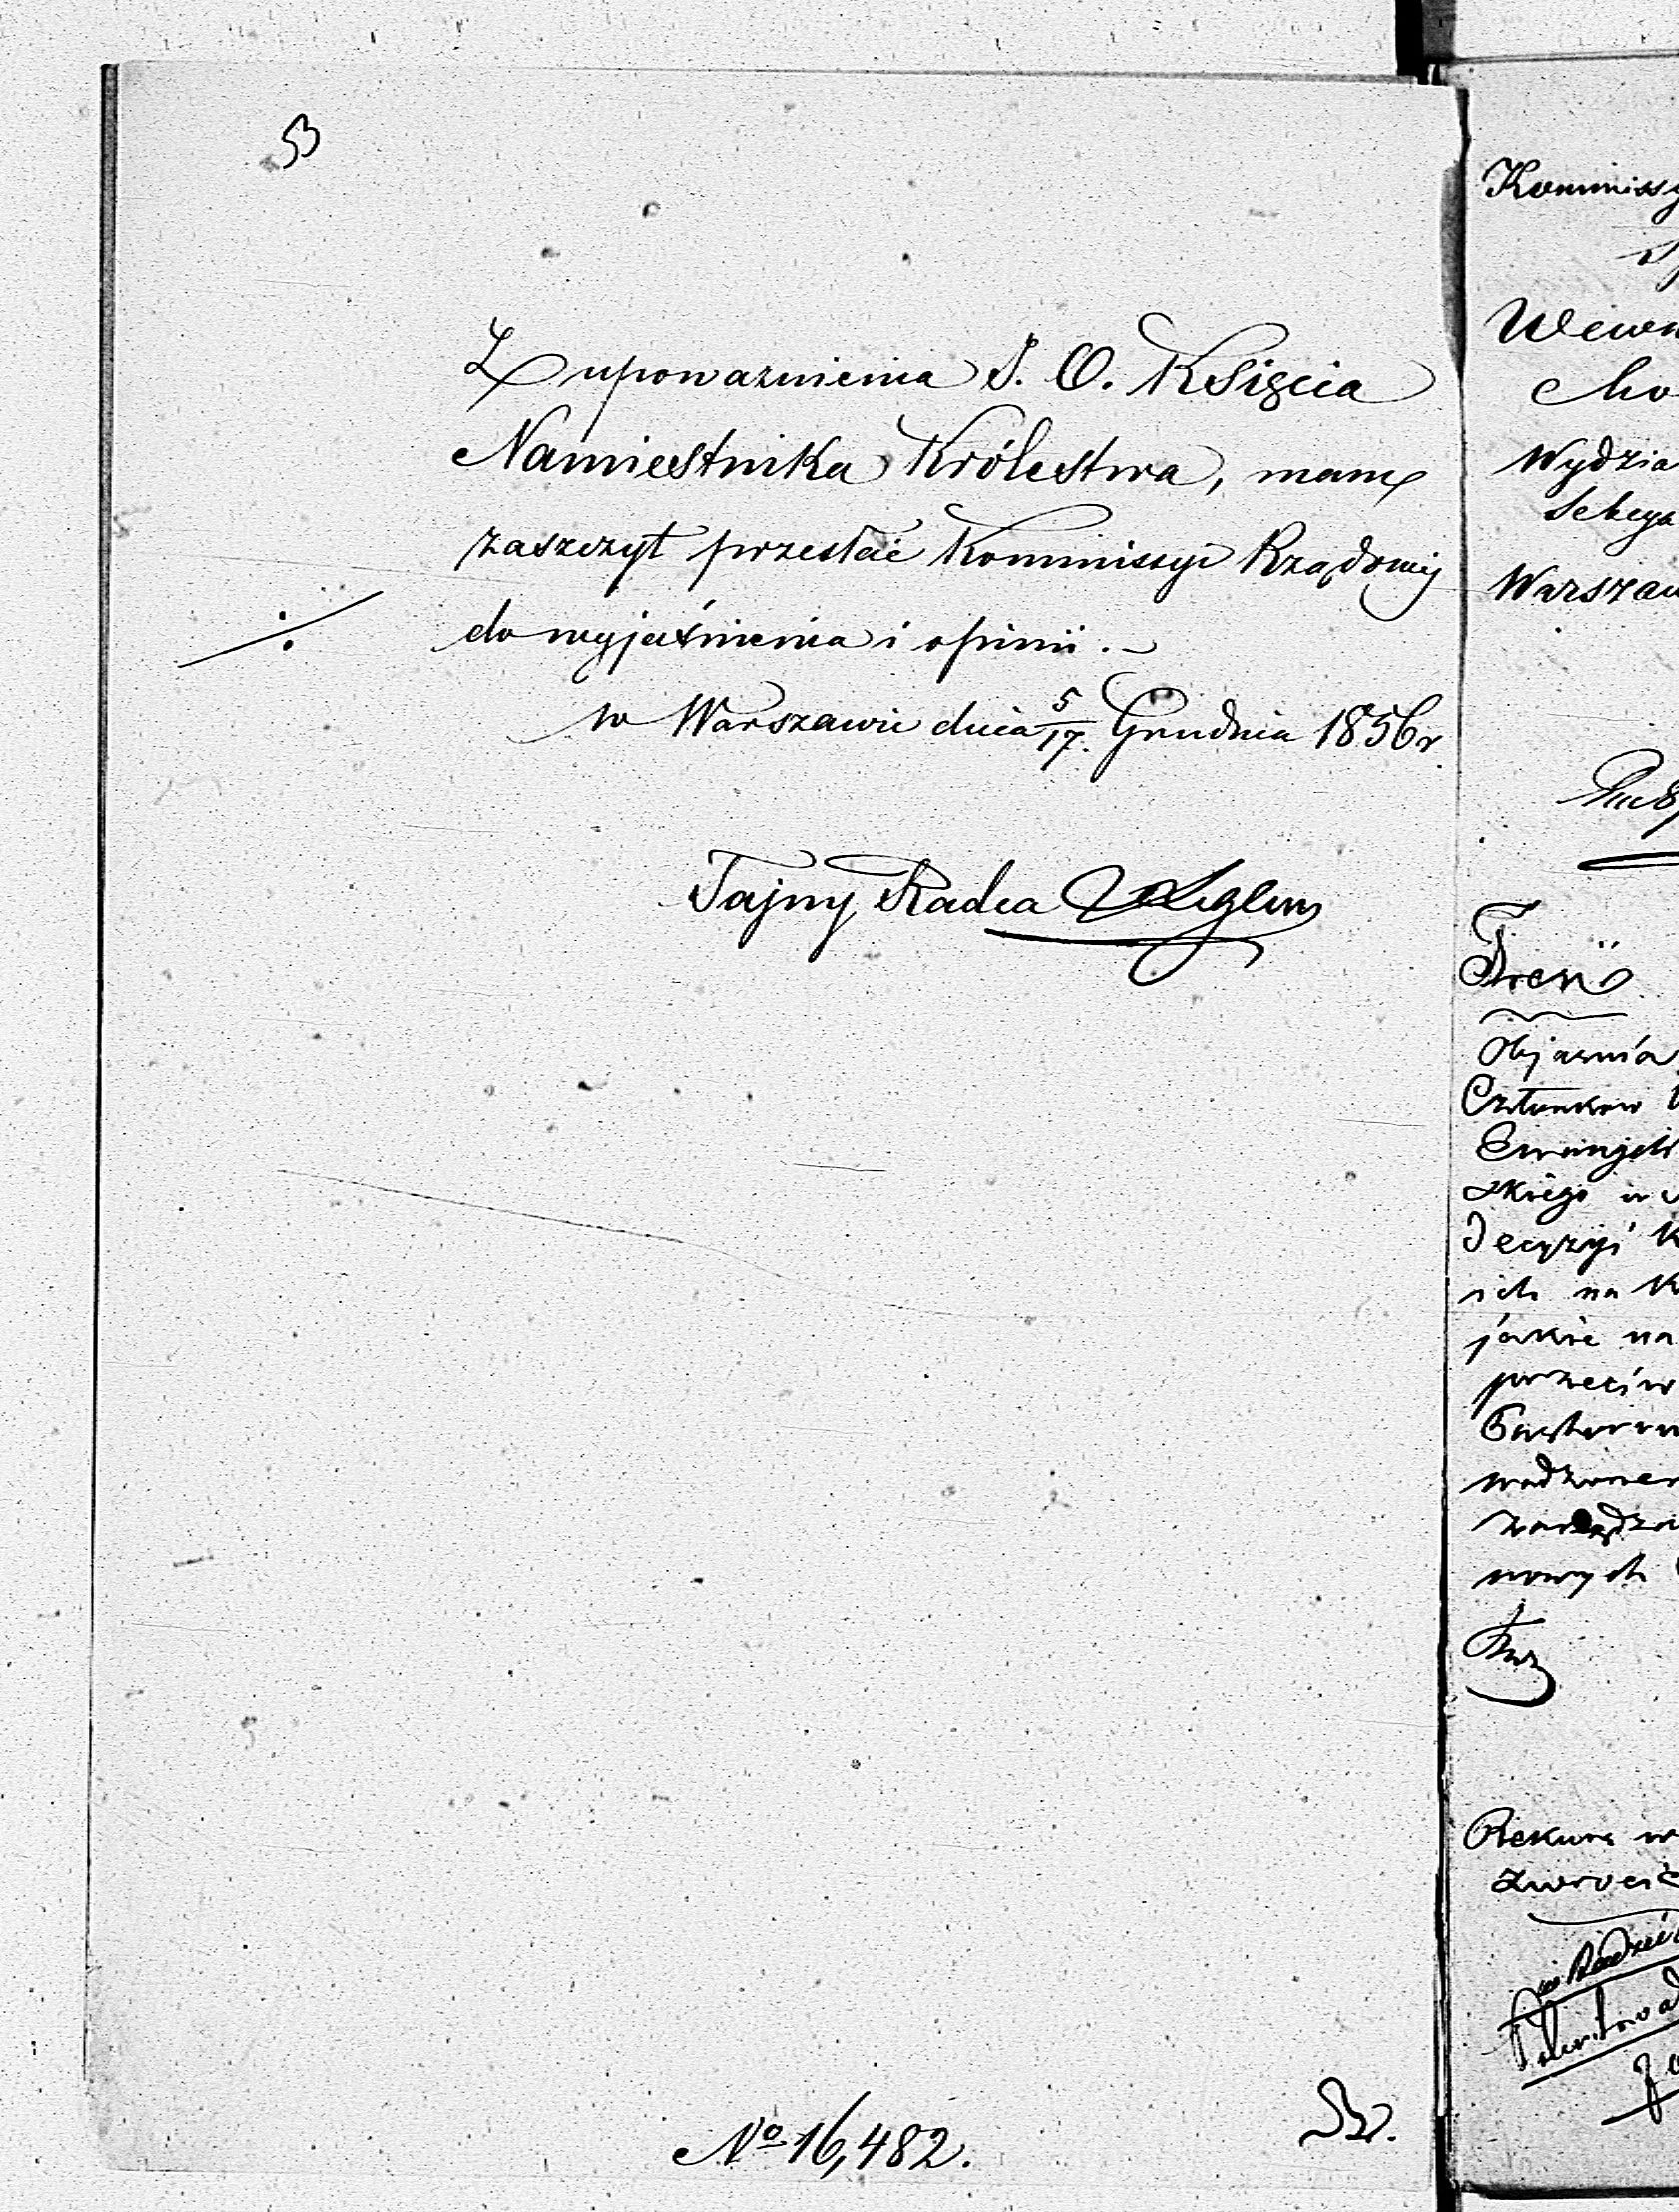 53
Z upoważnienia J. O. Księcia
Namiestnika Królestwa, mam
zaszczyt przesłać Kommissyi Rządowej
do wyjaśnienia i opinii. -
w Warszawie dnia 5/17. Grudnia 1856 r.
Tajny Radca
No 16,482.
Kommissy
Wewn
Wydzia
Sekcya
Warszaw
Treść
Objaśnia
Członków
Ewangeli
skiego w
Decyzyi K
ich na K
jakie na
przeciw
Pastorow
wadzone
zarządza
nowych
zwrócić